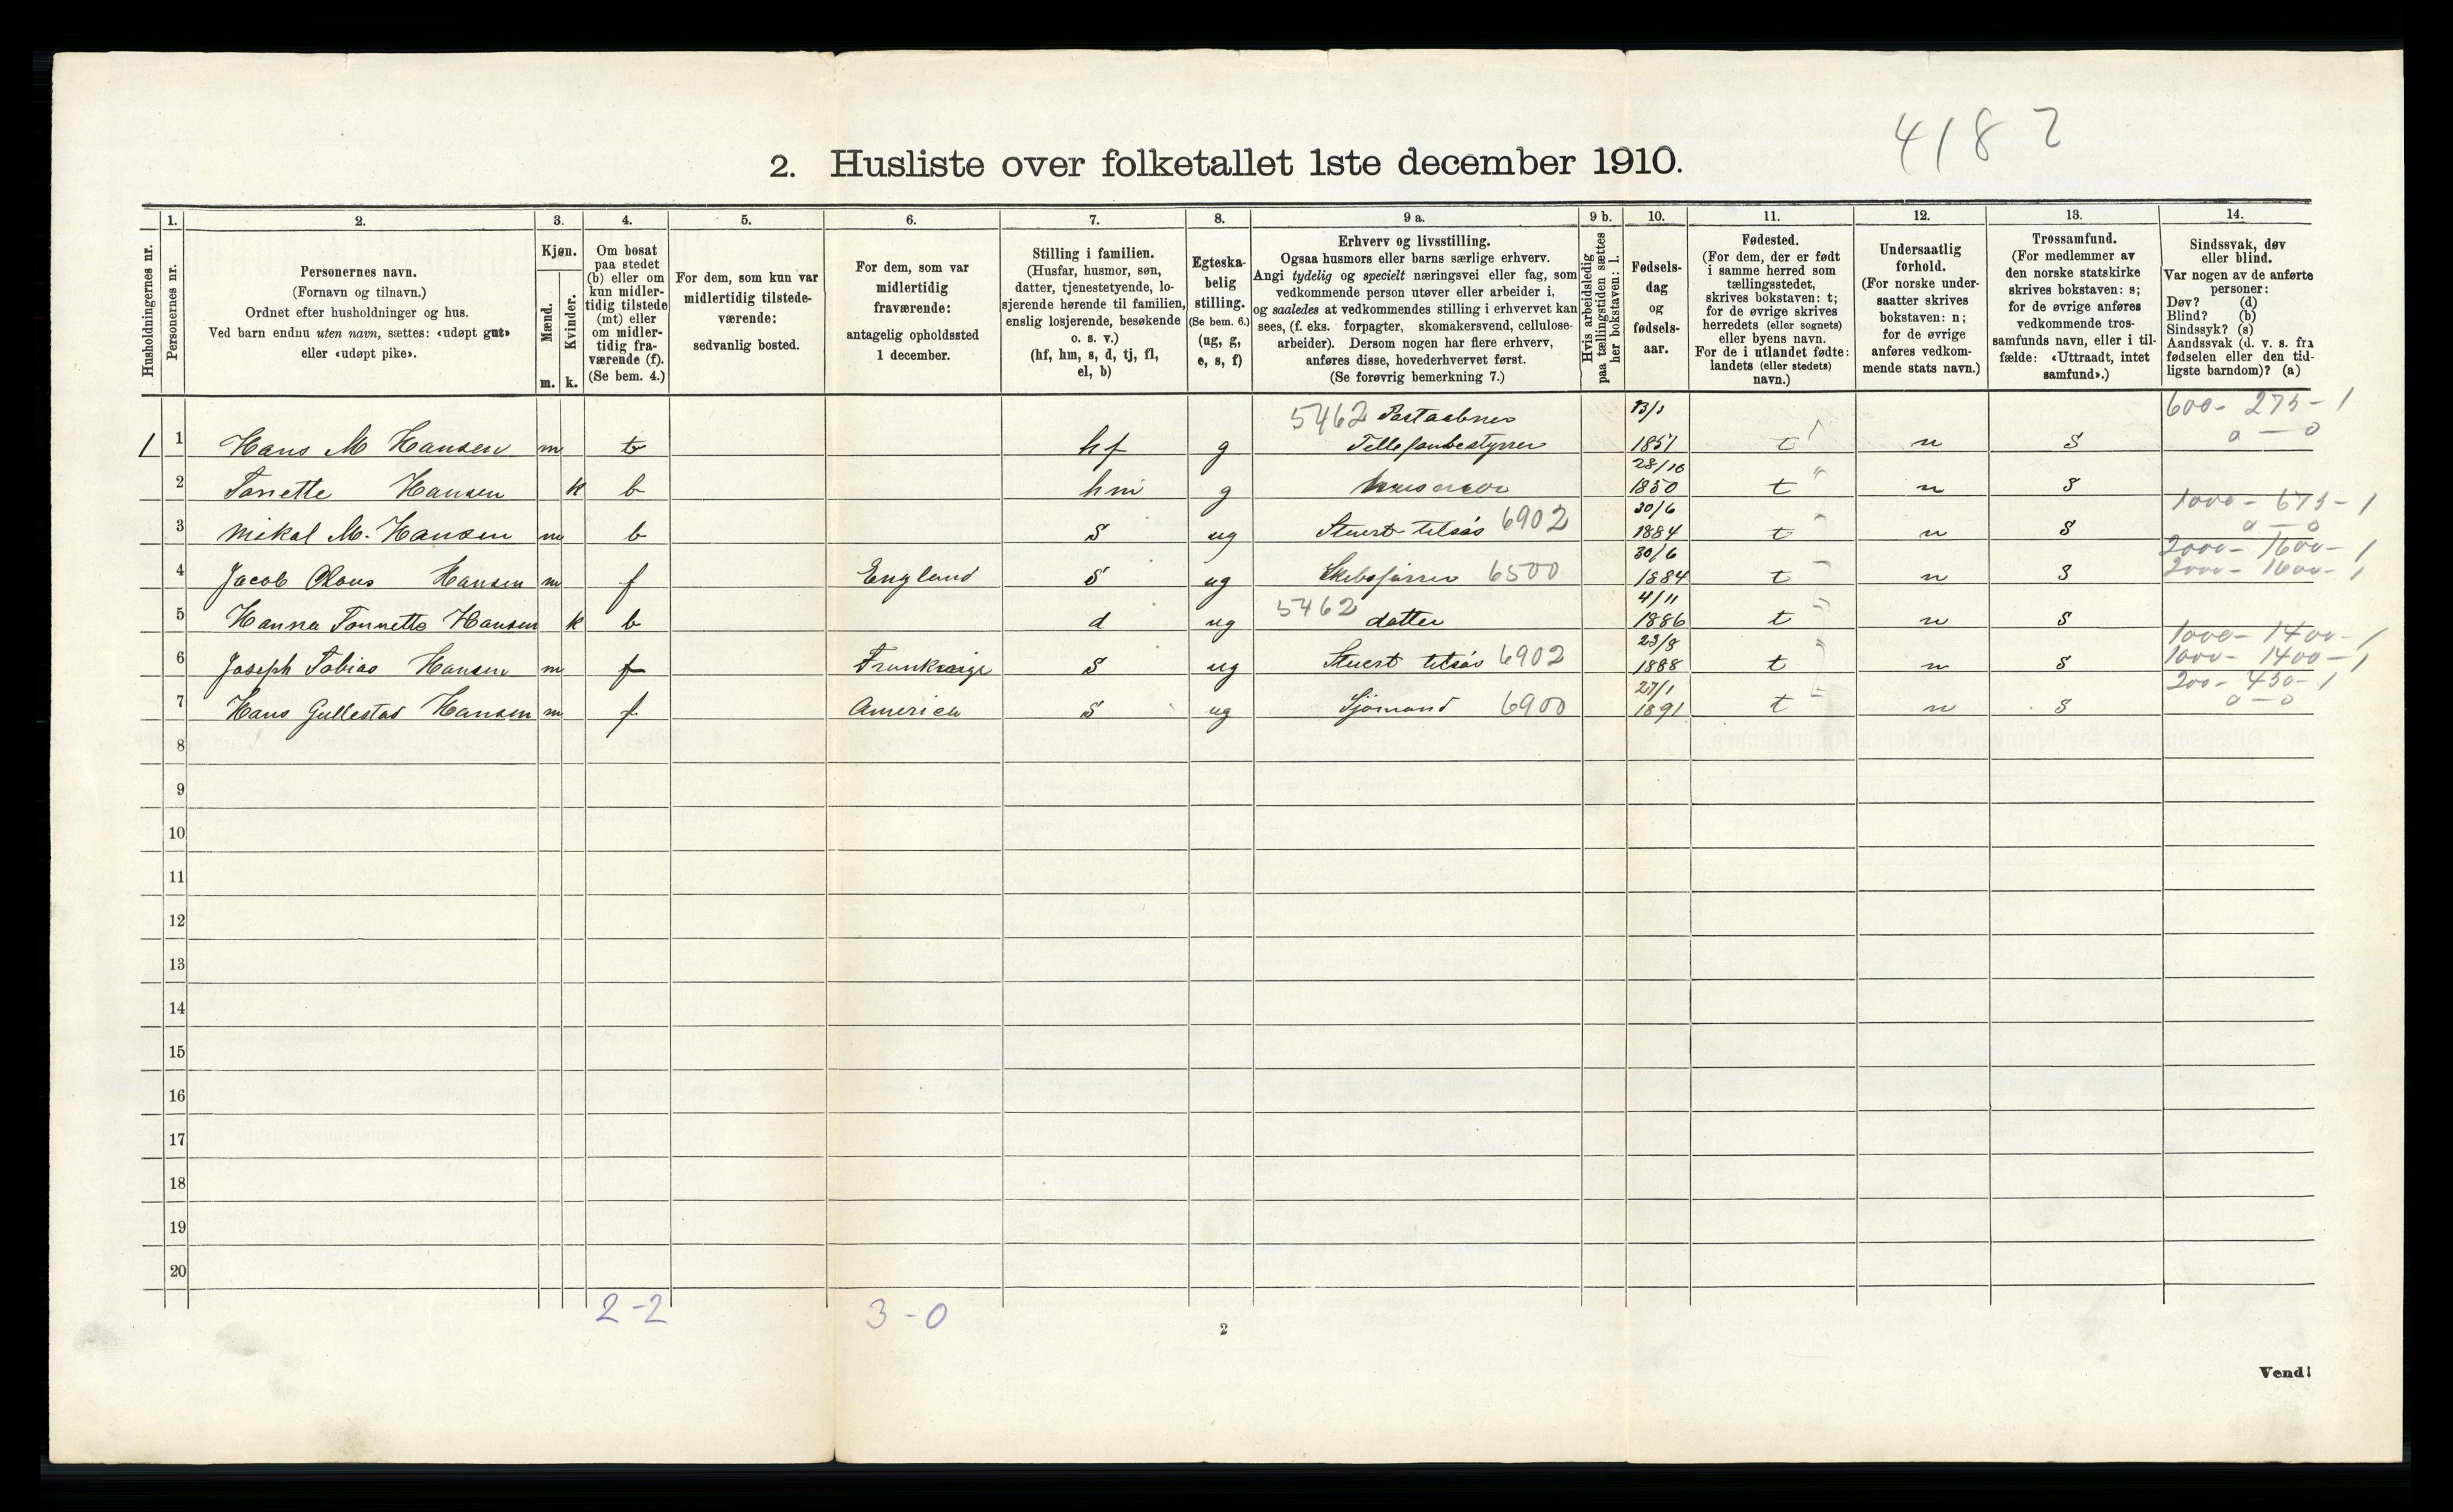 4182
2. Husliste over folketallet 1ste december 1910.
1. 2. 3. 4. 5. 6. 7. 8. 9 a. 9 b. 10. 11. 12. 13. 14.
Husholdningernes nr.
Personernes nr.
Personernes navn.
(Fornavn og tilnavn.)
Ordnet efter husholdninger og hus.
Ved barn endnu uten navn, sættes: «udøpt gut»
eller «udøpt pike».
Kjøn.
Mænd.
Kvinder.
m. k.
Om bosat
paa stedet
(b) eller om
kun midler-
tidig tilstede
(mt) eller
om midler-
tidig fra-
værende (f).
(Se bem. 4.)
For dem, som kun var
midlertidig tilstede-
værende:
sedvanlig bosted.
For dem, som var
midlertidig
fraværende:
antagelig opholdssted
1 december.
Stilling i familien.
(Husfar, husmor, søn,
datter, tjenestetyende, lo-
sjerende hørende til familien,
enslig losjerende, besøkende
o. s. v.)
(hf, hm, s, d, tj, fl,
el, b)
Egteska-
belig
stilling.
(Se bem. 6.)
(ug, g,
e, s, f)
Erhverv og livsstilling.
Ogsaa husmors eller barns særlige erhverv.
Angi tydelig og specielt næringsvei eller fag, som
vedkommende person utøver eller arbeider i,
og saaledes at vedkommendes stilling i erhvervet kan
sees, (f. eks. forpagter, skomakersvend, cellulose-
arbeider). Dersom nogen har flere erhverv,
anføres disse, hovederhvervet først.
(Se forøvrig bemerkning 7.)
Hvis arbeidsledig
paa tællingstiden sættes
her bokstaven: l.
Fødsels-
dag
og
fødsels-
aar.
Fødested.
(For dem, der er født
i samme herred som
tællingsstedet,
skrives bokstaven: t;
for de øvrige skrives
herredets (eller sognets)
eller byens navn.
For de i utlandet fødte:
landets (eller stedets)
navn.)
Undersaatlig
forhold.
(For norske under-
saatter skrives
bokstaven: n;
for de øvrige
anføres vedkom-
mende stats navn.)
Trossamfund.
(For medlemmer av
den norske statskirke
skrives bokstaven: s;
for de øvrige anføres
vedkommende tros-
samfunds navn, eller i til-
fælde: «Uttraadt, intet
samfund».)
Sindssvak, døv
eller blind.
Var nogen av de anførte
personer:
Døv? (d)
Blind? (b)
Sindssyk? (s)
Aandssvak (d. v. s. fra
fødselen eller den tid-
ligste barndom)? (a)
5462 Postaabner 13/1 600- 275- 1
1 1 Hans M Hansen m b hf g Tellefonbestyrer 1851 t n S 0 — 0
28/10
2 Tonette Hansen k b hm g husmor 1850 t n S
30/6 1000- 675- 1
3 Mikal M. Hansen m b S ug Stuert tilsøs 6902 1884 t n S 0 — 0
30/6 2000- 1600- 1
4 Jacob Claus Hansen m f England S ug Skibsfører 6500 1884 t n S 2000- 1600- 1
4/11
5 Hanna Tonnette Hansen k b d ug 5462 datter 1886 t n S
23/8 1000- 1400- 1
6 Joseph Tobias Hansen m f Frankreige S ug Stuert tilsøs 6902 1888 t n S 1000- 1400- 1
27/1 200- 450- 1
7 Hans Gullestad Hansen m f America S ug Sjømand 6900 1891 t n S 0 — 0
8
9
10
11
12
13
14
15
16
17
18
19
20
2-2 3-0
2
Vend!